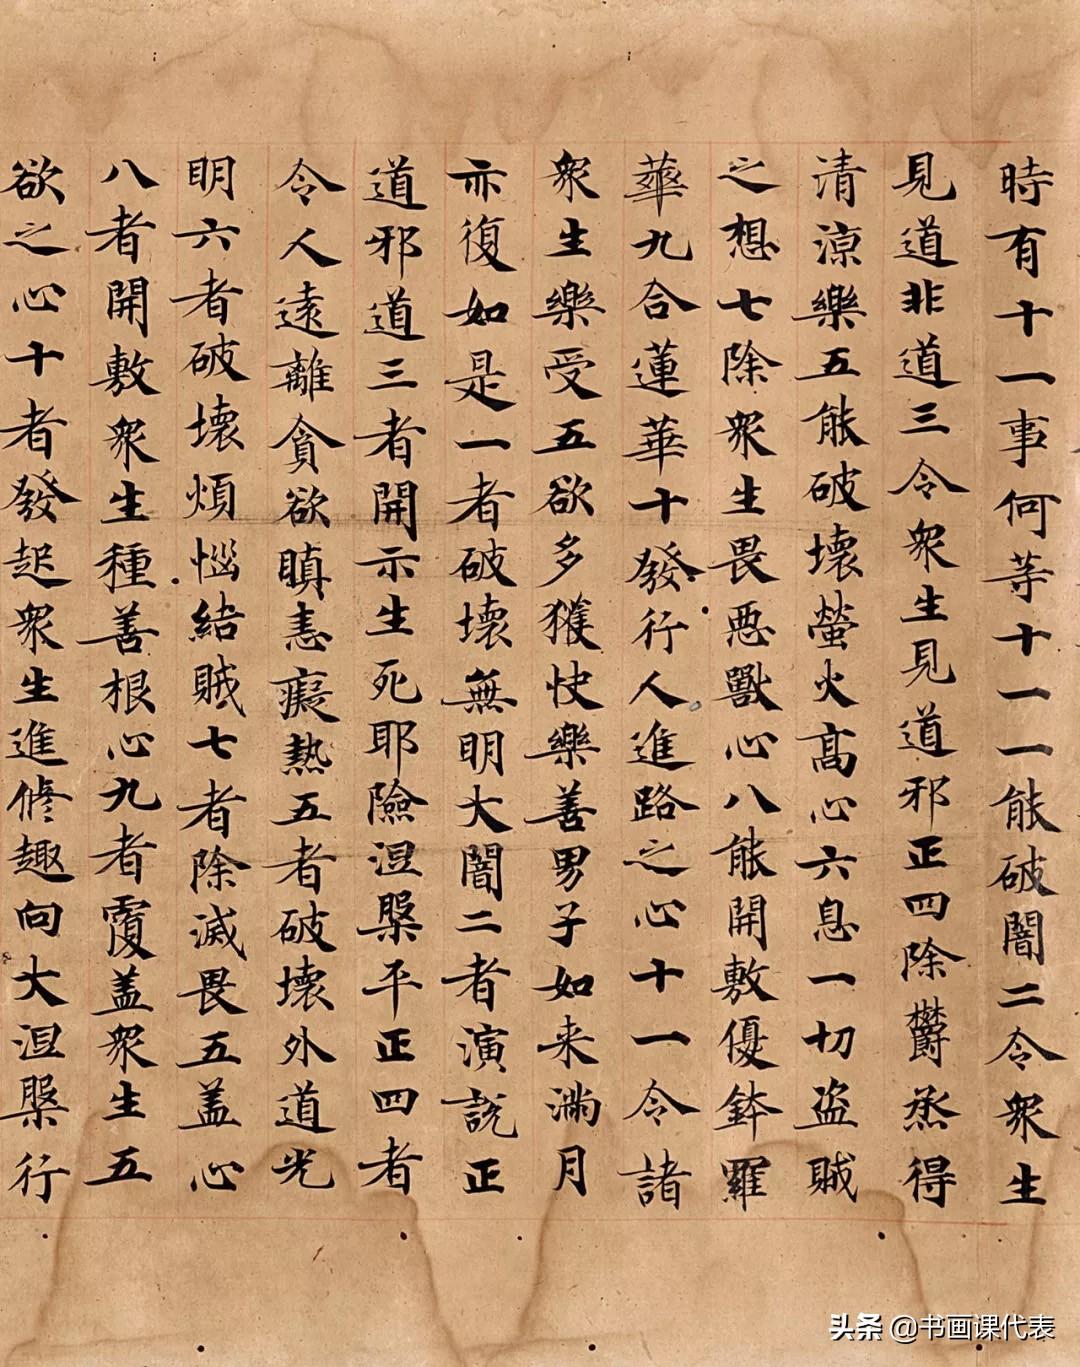 時有十一事何等十一一能破闇二令衆生
見道非道三令衆生見道邪正四除欝烝得
清涼樂五能破壞螢火高心六息一切盜賊
之想七除衆生畏惡獸心八能開敷優鉢羅
華九合蓮華十發行人進路之心十一令諸
衆生樂受五欲多獲快樂善男子如来滿月
亦復如是一者破壞無明大闇二者演説正
道邪道三者開示生死耶險涅槃平正四者
令人遠離貪欲瞋恚癡熱五者破壞外道光
明六者破壞煩惱結賊七者除滅畏五盖心
八者開敷衆生種善根心九者覆盖衆生五
欲之心十者發起衆生進修趣向大涅槃行
头条 @书画课代表